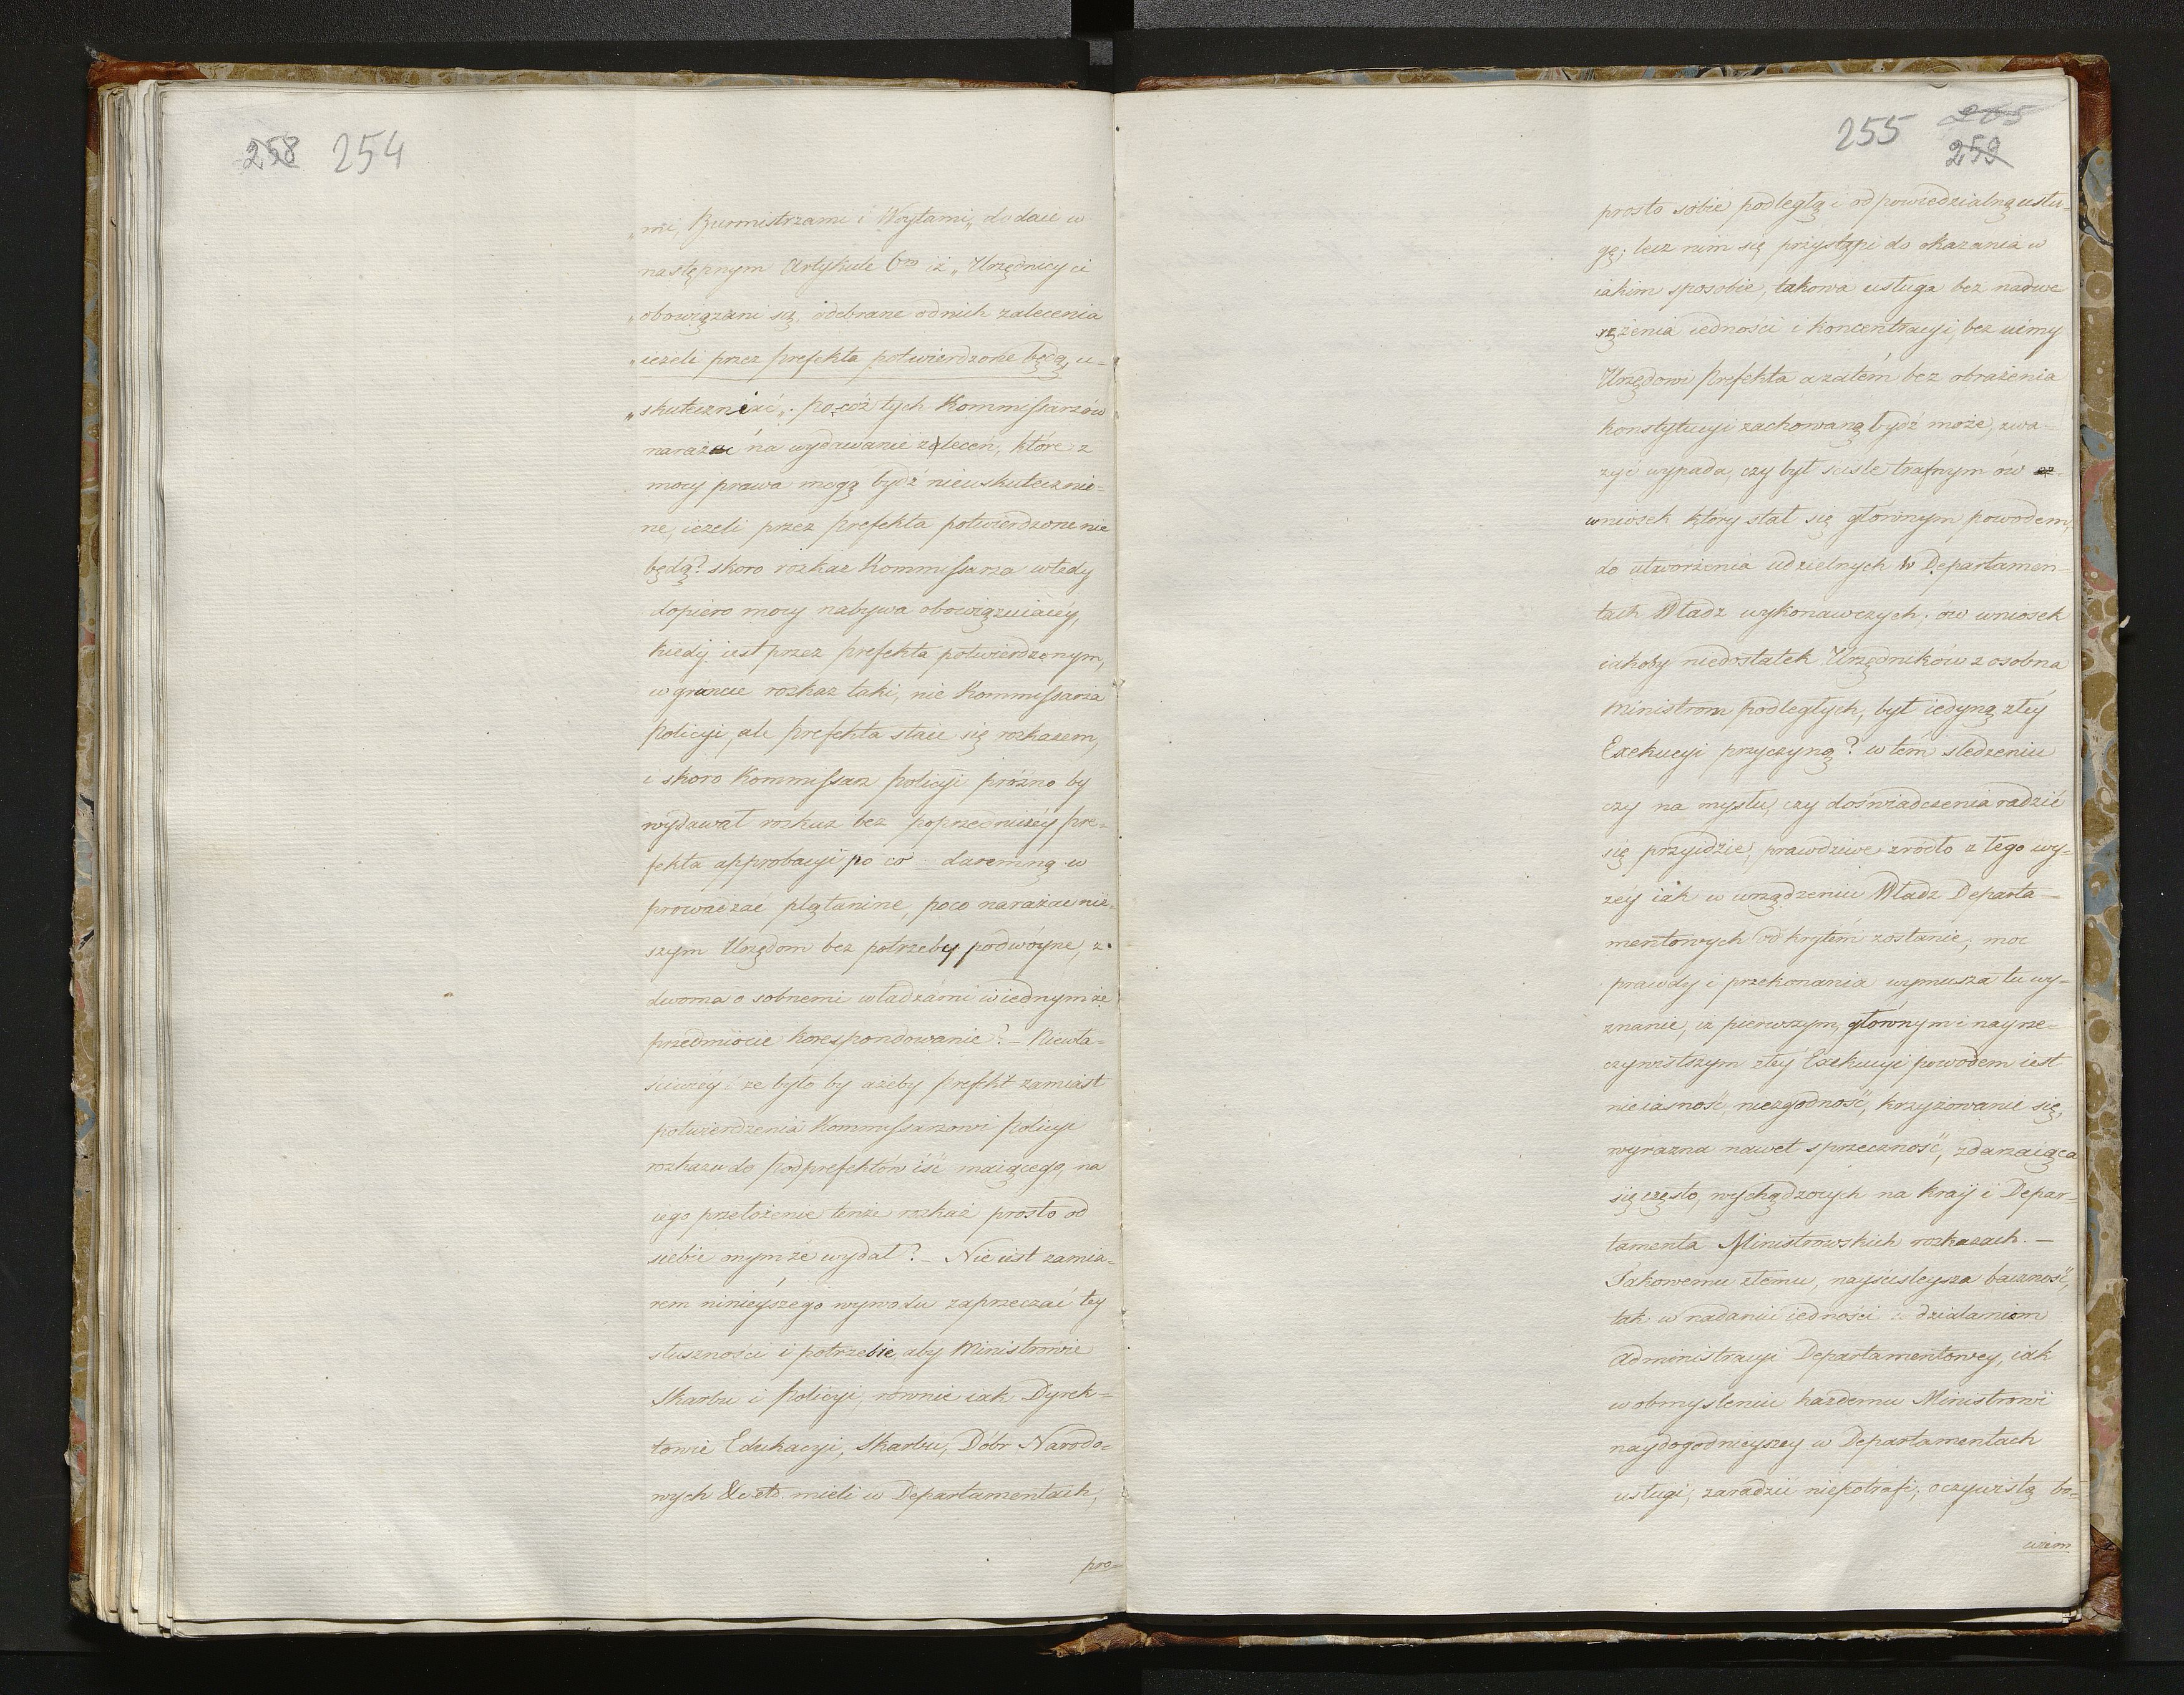 258 254
„mi, Burmistrzami i Woytami„ dodaie w
następnym Artykule 6m iż „Urzędnicy ci
„obowiązani są, odebrane od nich zalecenia
„ieżeli przez prefekta potwierdzone będą, u-
„skutecznić„. pocóż tych Kommissarzów
narażać na wydawanie zaleceń, które z
mocy prawa mogą bydź nieuskutecznio=
ne, ieżeli przez prefekta potwierdzone nie
będą? skoro rozkaz Kommissarza wtedy
dopiero mocy nabywa obowiązuiącéy,
kiedy iest przez prefekta potwierdzonym,
w gruncie rozkaz taki, nie Kommissarza
Policyi, ale prefekta staie się rozkazem,
i skoro Kommissarz policyi próżno by
wydawał rozkaz bez poprzedniczéy pre=
fekta approbacyi po co daremną w
prowadzać plątaninę, poco narażać niż-
szym Urzędom bez potrzeby podwóyne, z
dwoma osobnemi władzami w iednymże
przedmiocie korespondowanie? - Niewła=
ściwéy że było by ażeby prefekt zamiast
potwierdzenia Kommissarzowi Policyi
rozkazu do Podprefektów iść maiącego, na
iego przełożenie tenże rozkaz prosto od
siebie onymże wydał? - Nie iest zamia=
rem ninieyszego wywodu zaprzeczać tey
słuszności i potrzebie, aby Ministrowie
Skarbu i Policyi, równie iak Dyrek=
torowie Edukacyi, Skarbu, Dóbr Narodo=
wych &c etc mieli w Departamentach,
pro=
255 265
259
prosto sobie podległą i odpowiedzialną usłu-
gę; lecz nim się przystąpi do okazania w
iakim sposobie, takowa usługa bez nadwe
rężenia iedności i koncentracyi, bez uimy
Urzędowi Prefekta a zatém bez obrażenia
konstytucyi zachowaną bydź może, zwa-
żyć wypada, czy był ściśle trafnym ów
wniosek który stał się głównym powodem,
do utworzenia udzielnych w Departamen-
tach Władz wykonawczych; ów wniosek
iakoby niedostatek Urzędników z osobna
Ministrom podległych, był iedyną złéy
Exekucyi przyczyną? w tém śledzeniu
czy na mysłu, czy doświadczenia radzić
się przyidzie, prawdziwe zródło z tego wy=
zéy iak w urządzeniu Władz Departa-
mentowych odkrytém zostanie; moc
prawdy i przekonania wymusza tu wy=
znanie, iż pierwszym, głównym i nayrze=
czywistszym złéy Exekucyi powodem iest
nieiasność, niezgodność, krzyżowanie się,
wyrazna nawet sprzeczność, zdarzaiąca
się często, wychądzących na kray i Depar-
tamenta Ministrowskich rozkazach. -
Takowemu złemu, nayściśleysza baczność,
tak w nadaniu iedności w działaniom
Administracyi Departamentowey, iak
w obmyśleniu każdemu Ministrowi
naydogodnieyszey w Departamentach
usługi, zaradzić niepotrafi; oczywistą bo=
wiem